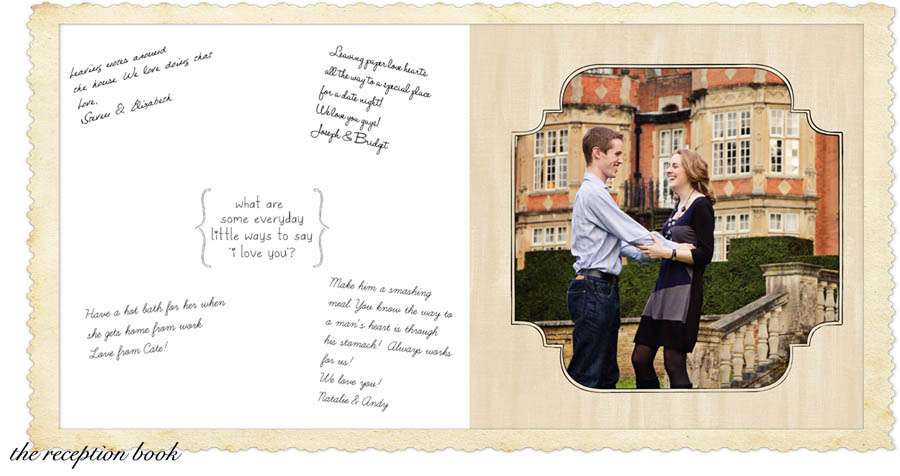 Leaving notes around
the house. We love doing that
Love,
Steven & Elizabeth
Leaving paper love hearts
all the way to a special place
for a date night!
We love you guys!
Joseph & Bridget
what are
some everyday
little ways to say
"i love you"?
Have a hot bath for her when
she gets home from work
Love from Cate!
Make him a smashing
meal. You know the way to
a man's heart is through
his stomach! Always works
for us!
We love you!
Natalie & Andy
the reception book